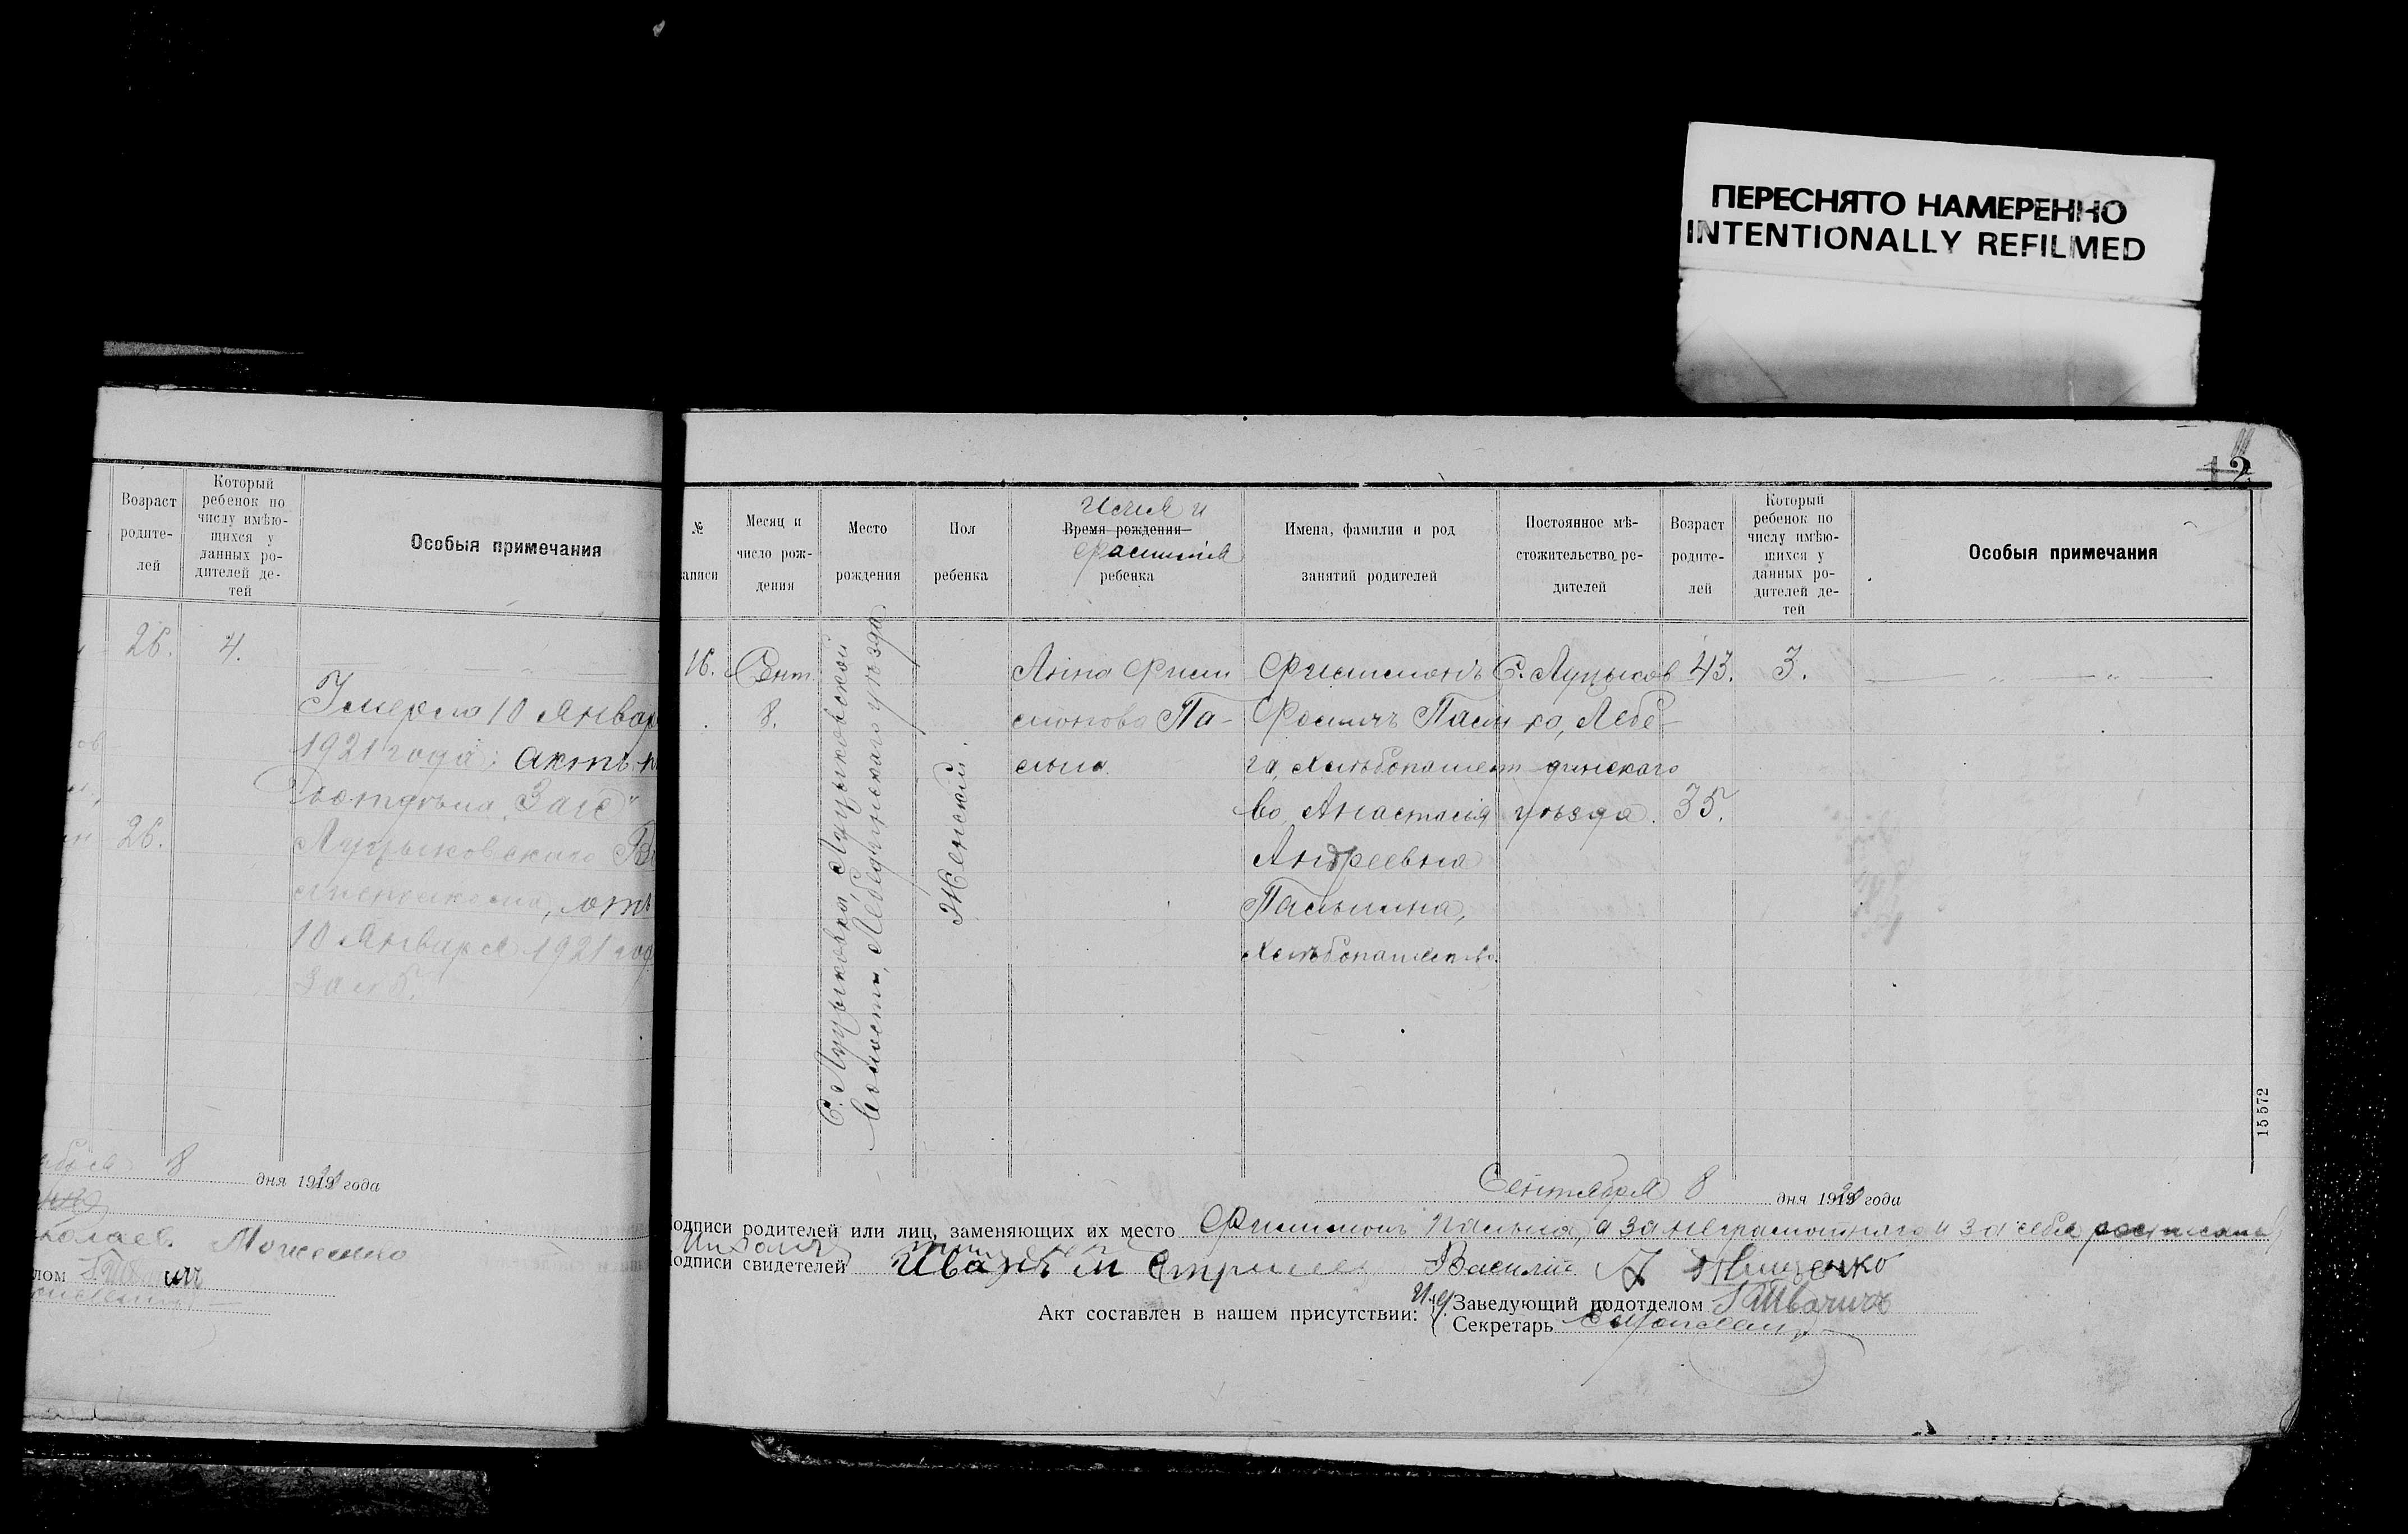 ПЕРЕСНЯТО НАМЕРЕННО
INTENTIONALLY REFILMED
Возраст
родите-
лей
Который
ребенок по
числу имѣю-
щихся у
данных ро-
дителей де-
тей
Особыя примечания
26.
4.
Умерла 10 Январ
1921 года; актъ
Заг
26.
Луцыковскаго
отъ
10 Января 1921 год
8
дня 1919 года
лом
12
№
аписи
Месяц и
число рож-
дения
Место
рождения
Пол
ребенка
Имя и
Время рождения
Фамилія
ребенка
Имена, фамилии и род
занятий родителей
Постоянное мѣ-
стожительство ро-
дителей
Возраст
родите-
лей
Который
ребенок по
числу имѣю-
щихся у
данных ро-
дителей де-
тей
Особыя примечания
16.
Сент.
8.
С. Луцыковка, Луцыковской
волости, Лебединскаго уѣзда
Женский.
Анна Фили
монова Па-
льма.
Филимонъ
Фомичъ Паль
га, хлѣбопашест
во, Анастасія
Андреевна
Пальмина,
хлѣбопашество.
С. Луцыков
ка, Лебе-
динскаго
уѣзда.
43.
35.
3.
15 572
Сентября 8 дня 1919 года
одписи родителей или лиц, заменяющих их место Филимонъ Пальма, а за неграмотнаго и за себя росписался
одписи свидетелей Иванъ М Василій
Акт составлен в нашем присутствии:
Заведующий подотделом
Секретарь